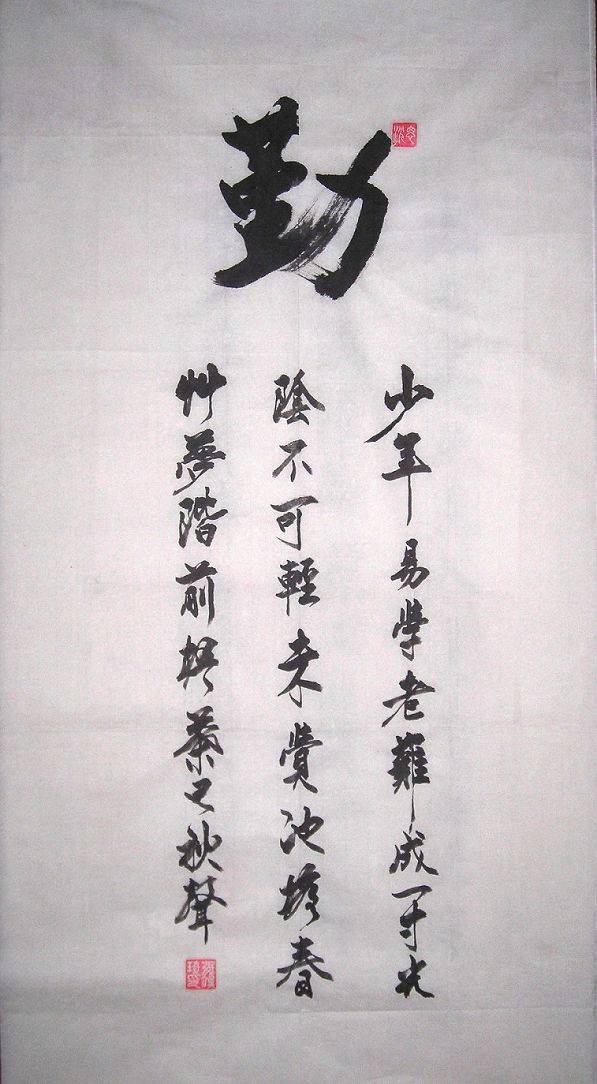 勤
少年易學老難成一寸光
陰不可輕未覺池塘春
艸夢階前梧葉已秋聲